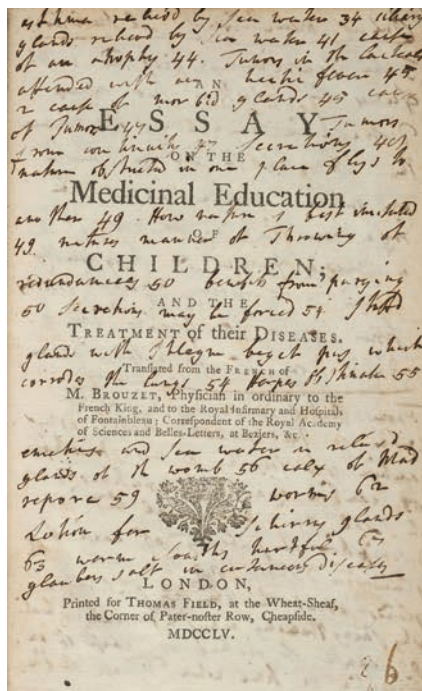 asthma relievd by sea water 34
glands relievd by sea water 41 case
of an atrophy 44. Tumors in the lacteals
attended with an hectic fever 45.
AN
2 case of morbid glands 45 case
ESSAY
of Tumors 47 Tumors
from 47 secretions 48
ON THE
nature obstructed in one place flys to
Medicinal Education
another 49. How nature is best imitated
OF
49. natures manner of Throwing of
CHILDREN;
redundances 50 benefit from purging
AND THE
50 secretions may be forced 51
TREATMENT of their DISEASES.
glands with Phlegm beget pus which
Translated from the FRENCH of
corrodes the lungs 54 Herpes 55
M. BROUZET, Physician in ordinary to the
French King, and to the Royal Infirmary and Hospitals
of Fontainbleau; Correspondent of the Royal Academy
of Sciences and Belles-Letters, at Beziers, &c.
emetics and sea water in relievd
glands of the womb 56 of Mad
59 worms 62
Lotion for Schirrus glands
63 worm hurtful
glaubers salt in cutaneous diseases
LONDON,
Printed for THOMAS FIELD, at the Wheat-Sheaf,
the Corner of Pater-noster Row, Cheapside.
MDCCLV.